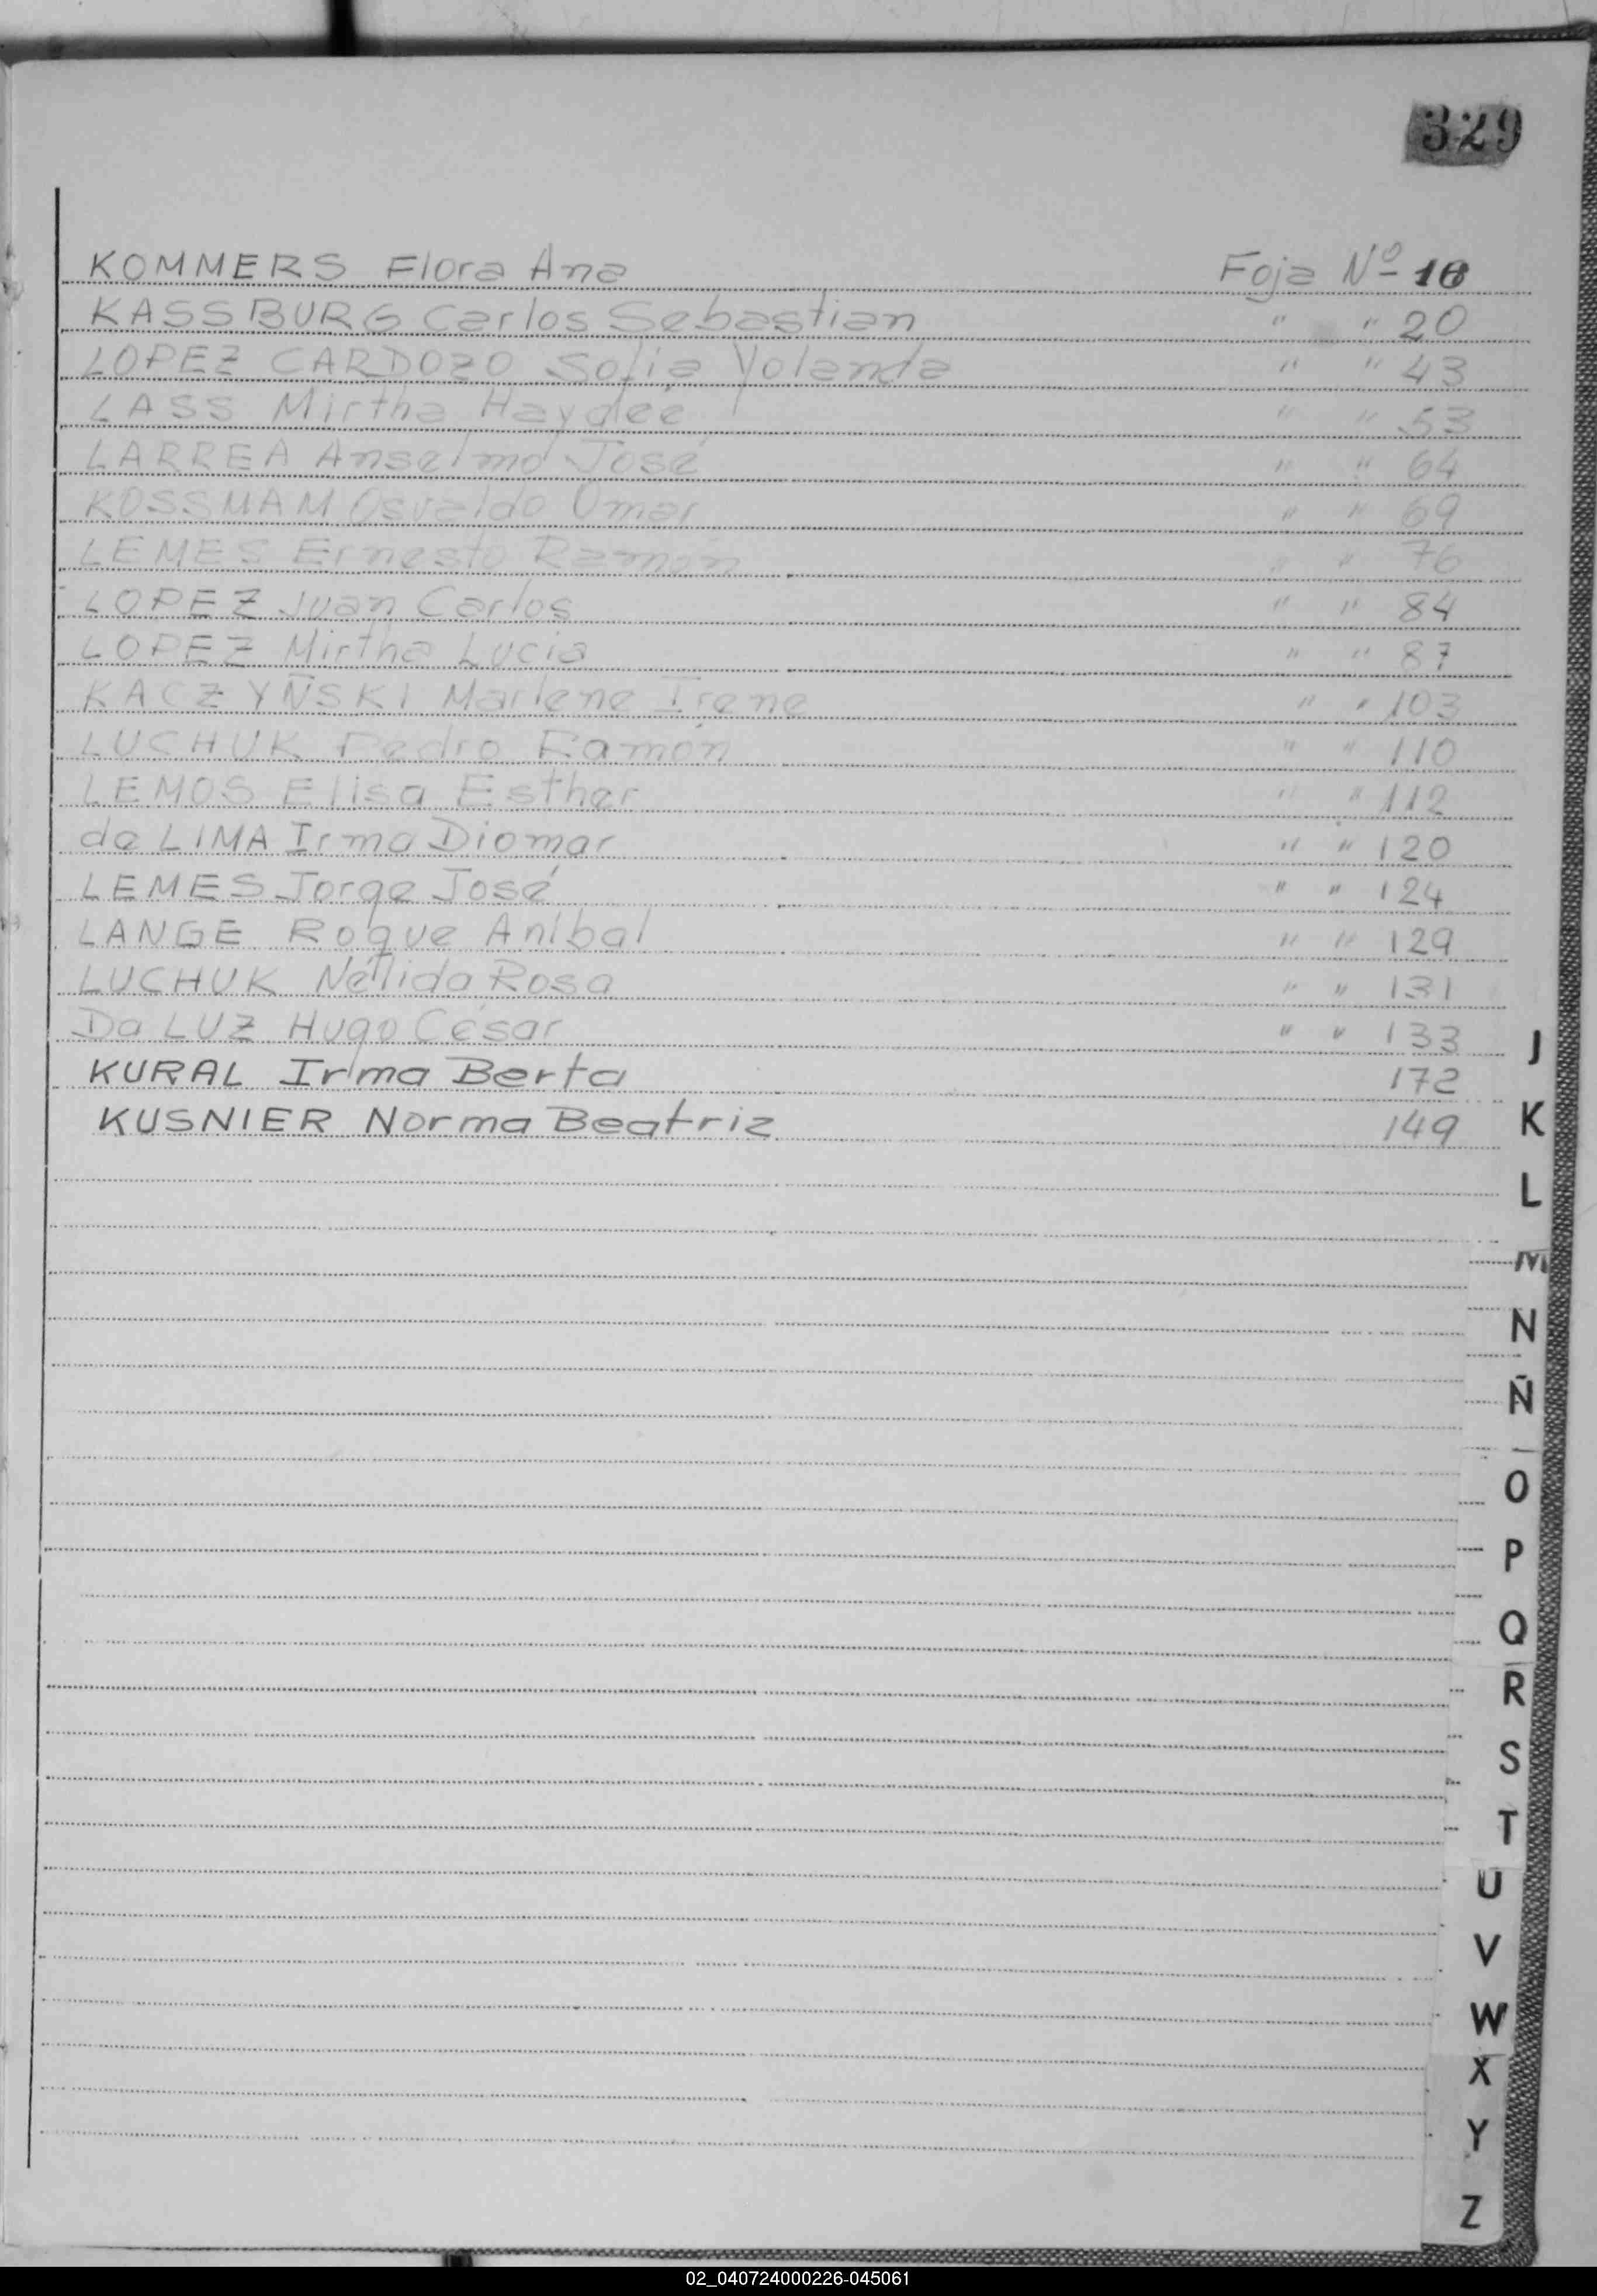 329
KOMMERS Flora Ana Foja Nº 10
KASSBURG Carlos Sebastian " " 20
LOPEZ CARDOZO Sofia Yolanda " " 43
LASS Mirtha Haydeé " " 53
LARREA Anselmo José " " 64
KOSSMAM Osvaldo Omar " " 69
LEMES Ernesto Ramón " " 76
LOPEZ Juan Carlos " " 84
LOPEZ Mirtha Lucia " " 87
KACZYÑSKI Marlene Irene " " 103
LUCHUK Pedro Ramón " " 110
LEMOS Elisa Esther " " 112
de LIMA Irma Diomar " " 120
LEMES Jorge José " " 124
LANGE Roque Aníbal " " 129
LUCHUK Nélida Rosa " " 131
Da LUZ Hugo César " " 133
KURAL Irma Berta 172
KUSNIER Norma Beatriz 149
J
K
L
M
N
Ñ
O
P
Q
R
S
T
U
V
W
X
Y
Z
02_040724000226-045061